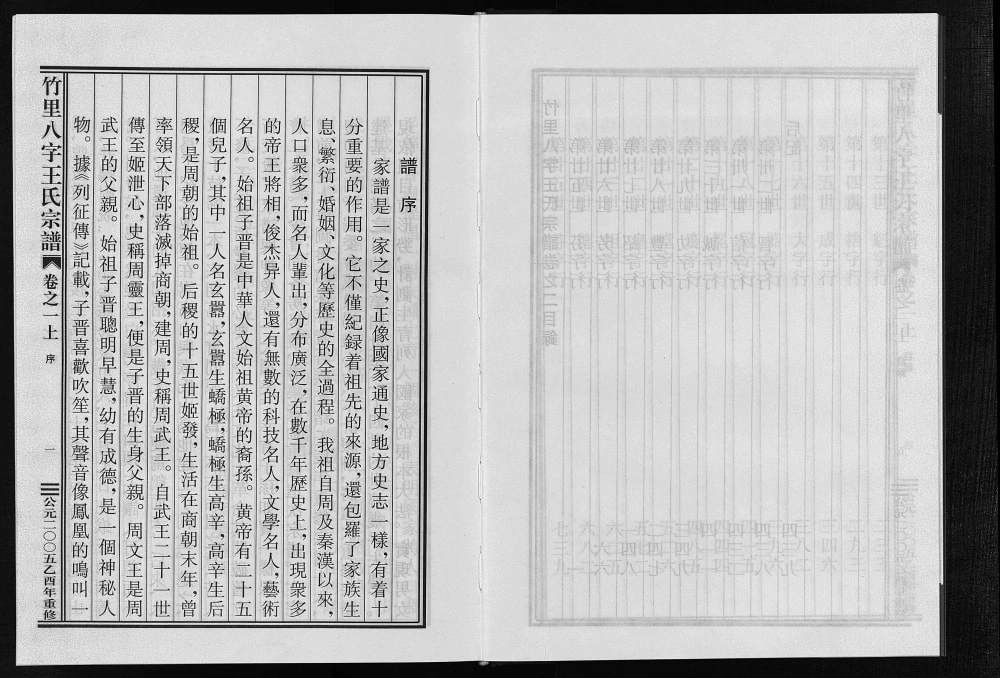 譜序
家譜是一家之史,正像國家通史,地方史志一樣,有着十
分重要的作用。它不僅紀録着祖先的來源,還包羅了家族生
息、繁衍、婚姻、文化等歷史的全過程。我祖自周及秦漢以來,
人口衆多,而名人輩出,分布廣泛,在數千年歷史上,出現衆多
的帝王將相,俊杰异人,還有無數的科技名人,文學名人,藝術
名人。始祖子晋是中華人文始祖黄帝的裔孫。黄帝有二十五
個兒子,其中一人名玄囂,玄囂生蟜極,蟜極生高辛,高辛生后
稷,是周朝的始祖。后稷的十五世姬發,生活在商朝末年,曾
率領天下部落滅掉商朝,建周,史稱周武王。自武王二十一世
傳至姬泄心,史稱周靈王,便是子晋的生身父親。周文王是周
武王的父親。始祖子晋聰明早慧,幼有成德,是一個神秘人
物。據《列征傳》記載,子晋喜歡吹笙,其聲音像鳳凰的鳴叫一
竹里八字王氏宗譜
卷之一上
序
一
公元二〇〇五乙酉年重修
竹里八字王氏宗譜卷之二目録